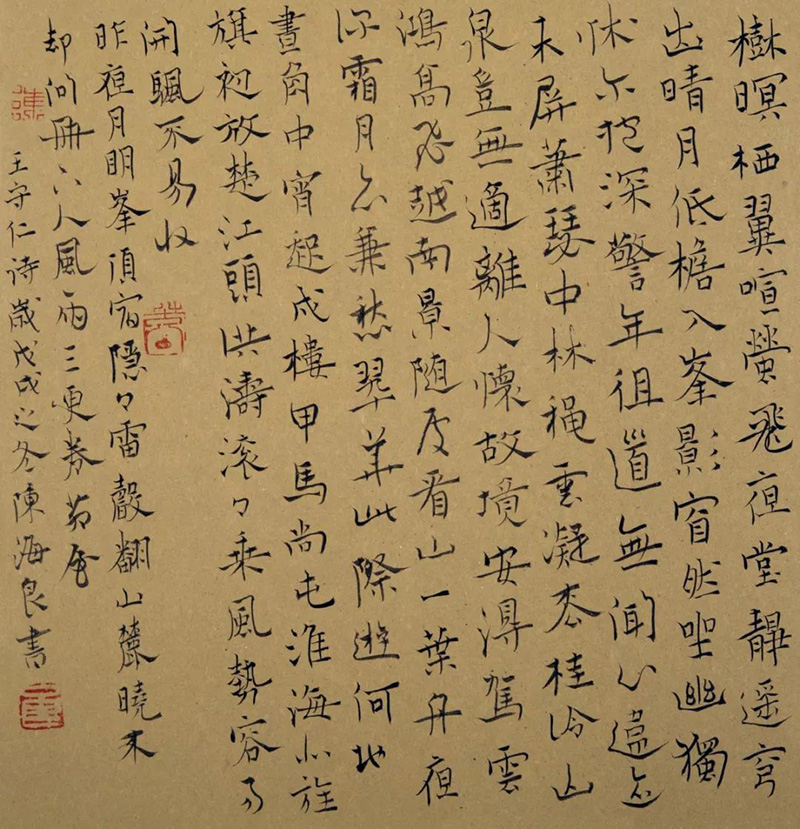 樹暝栖翼喧螢飛夜堂靜遥穹
出晴月低檐入峯影窅然坐幽獨
怵尔抱深警年徂道無聞心違迹
未屏蕭瑟中林穐雲凝松桂冷山
泉豈無適離人懷故境安得駕雲
鴻高飛越南景随處看山一葉舟夜
深霜月亦兼愁翠華此際遊何地
畫角中宵起戍樓甲馬尚屯淮海北旌
旗初放楚江頭洪濤滚々乘風勢容易
開颿不易收
昨夜月明峯頂宿隐々雷聲翻山麓曉来
却问山下人風雨三更卷茅屋
王守仁诗歲戊戌之冬陳海良書